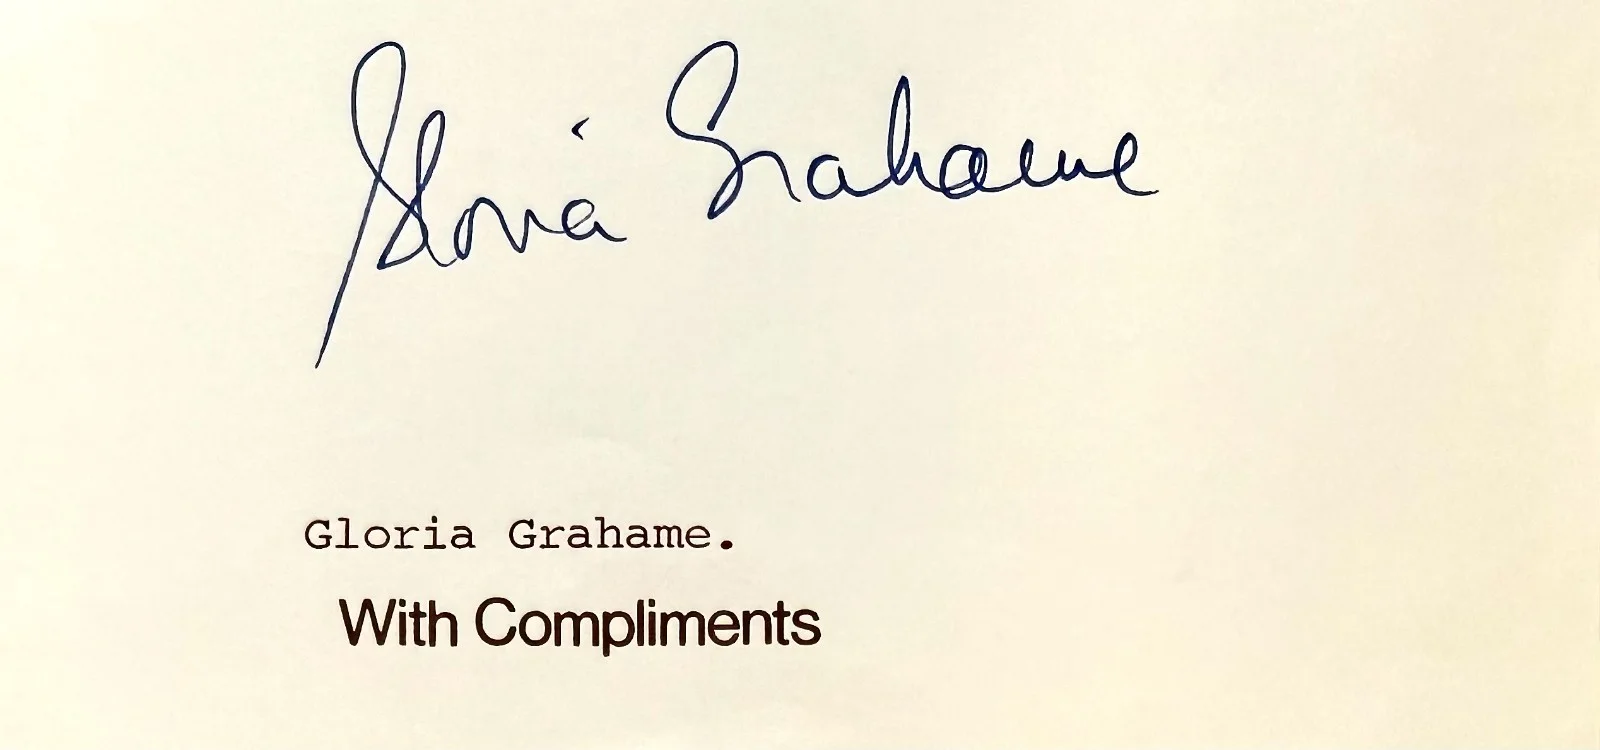 Gloria Grahame
Gloria Grahame.
With Compliments